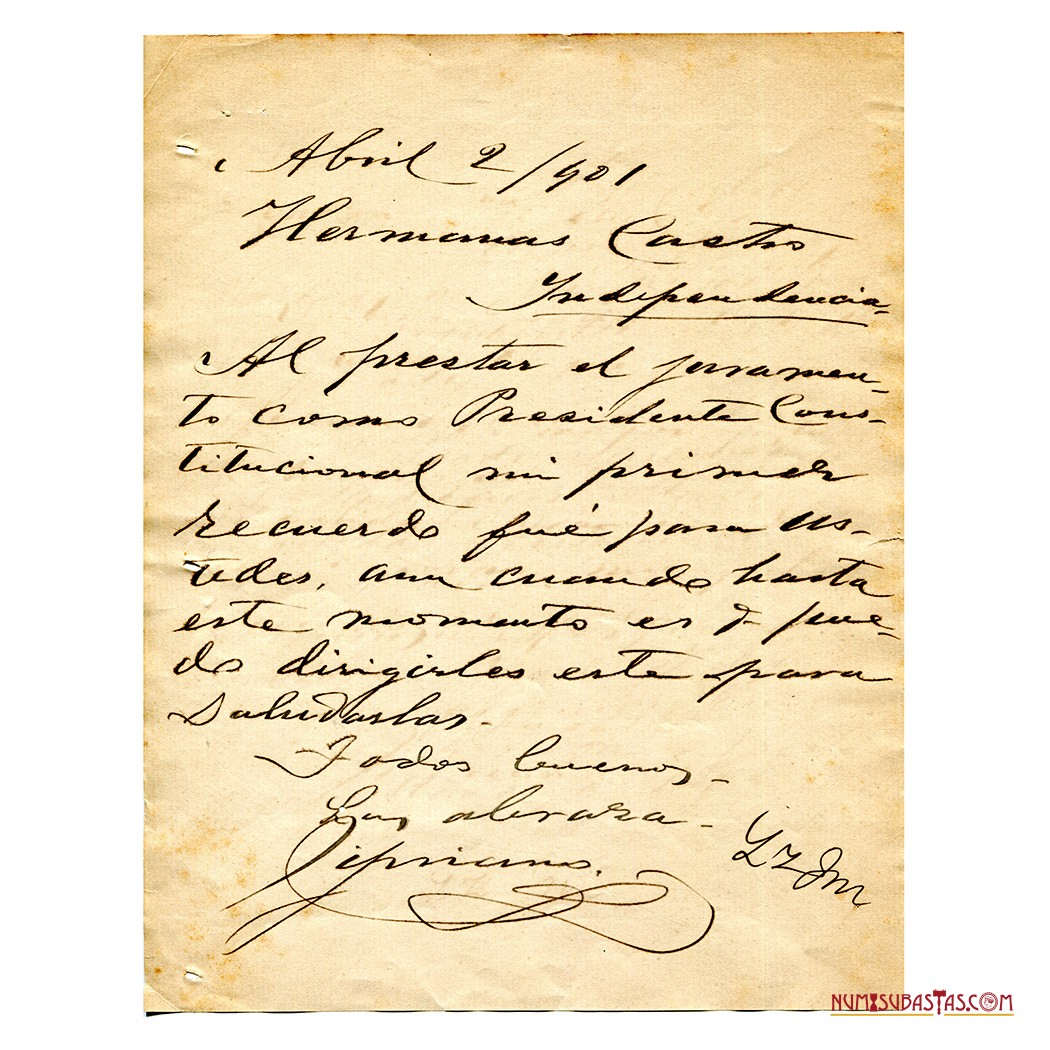 Abril 2/901
Hermanas Castro
Independencia-
Al prestar el juramen-
to como Presidente Cons-
titucional mi primer
recuerdo fué para us-
tedes, aun cuando hasta
este momento es q pue-
do dirigirles este para
Saludarlas-
Todos buenos-
Las abraza-
Cipriano.
NUMISUBASTAS.COM